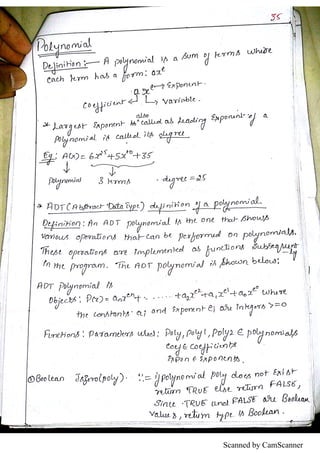 35
Polynomial
Definition :- A polynomial is a sum of terms where
each term has a form: axᵉ
a xᵉ → Exponent.
Coefficient ↵ ↳ Variable.
* Largest Exponent is also called as leading Exponent of a
polynomial is called its degree
Eg: A(x) = 6x²⁵ + 5x¹⁰ + 35
↓ ↓
polynomial 3 terms . degree = 25
* ADT (Abstract Data Type) definition of a polynomial.
Definition: An ADT polynomial is the one that shows
various operations that can be performed on polynomials.
These operations are implemented as functions subsequently
in the program. The ADT polynomial is shown below:
ADT Polynomial is
Objects: P(x) = aₙxᵉⁿ + ...... + a₂xᵉ² + a₁xᵉ¹ + a₀xᵉ⁰ where
the constants: aᵢ and Exponent eᵢ are Integers >=0
Functions: Parameters used: Poly, Poly1, Poly2 ∈ polynomials
Coef ∈ Coefficients
Expon ∈ Exponents.
① Boolean IsZero(poly). ::= if polynomial poly does not Exist
return TRUE else return FALSE,
Since TRUE and FALSE are Boolean
values, return type is Boolean.
Scanned by CamScanner